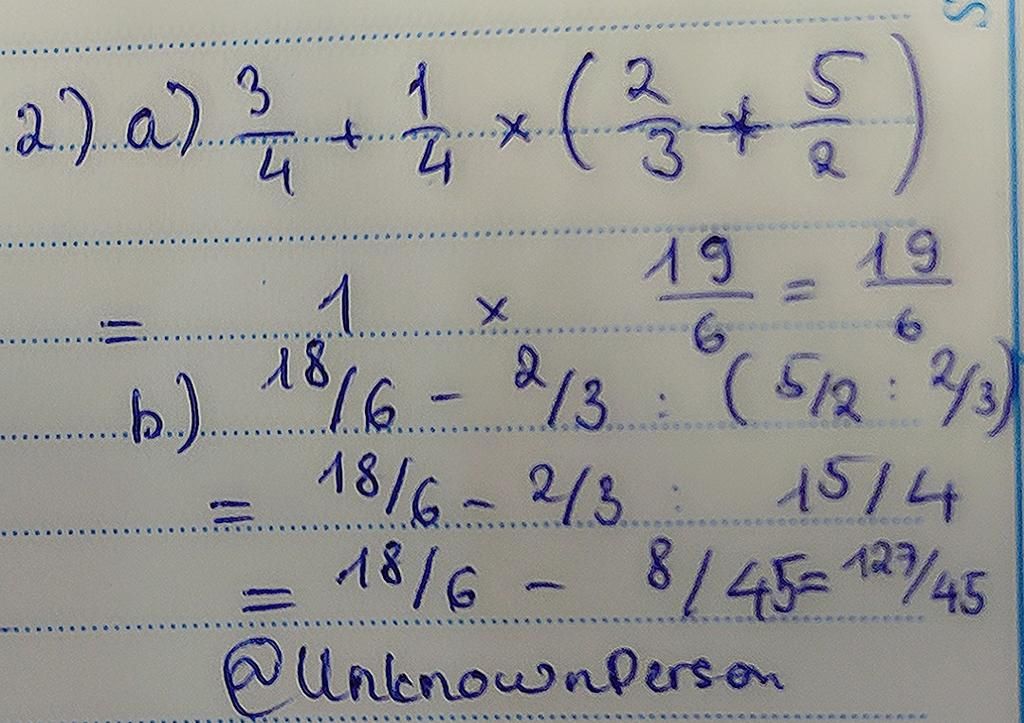 2) a) 3/4 + 1/4 × (2/3 + 5/2)
= 1 × 19/6 = 19/6
b) 18/6 - 2/3 : (5/2 : 2/3)
= 18/6 - 2/3 : 15/4
= 18/6 - 8/45 = 127/45
@UnknownPerson